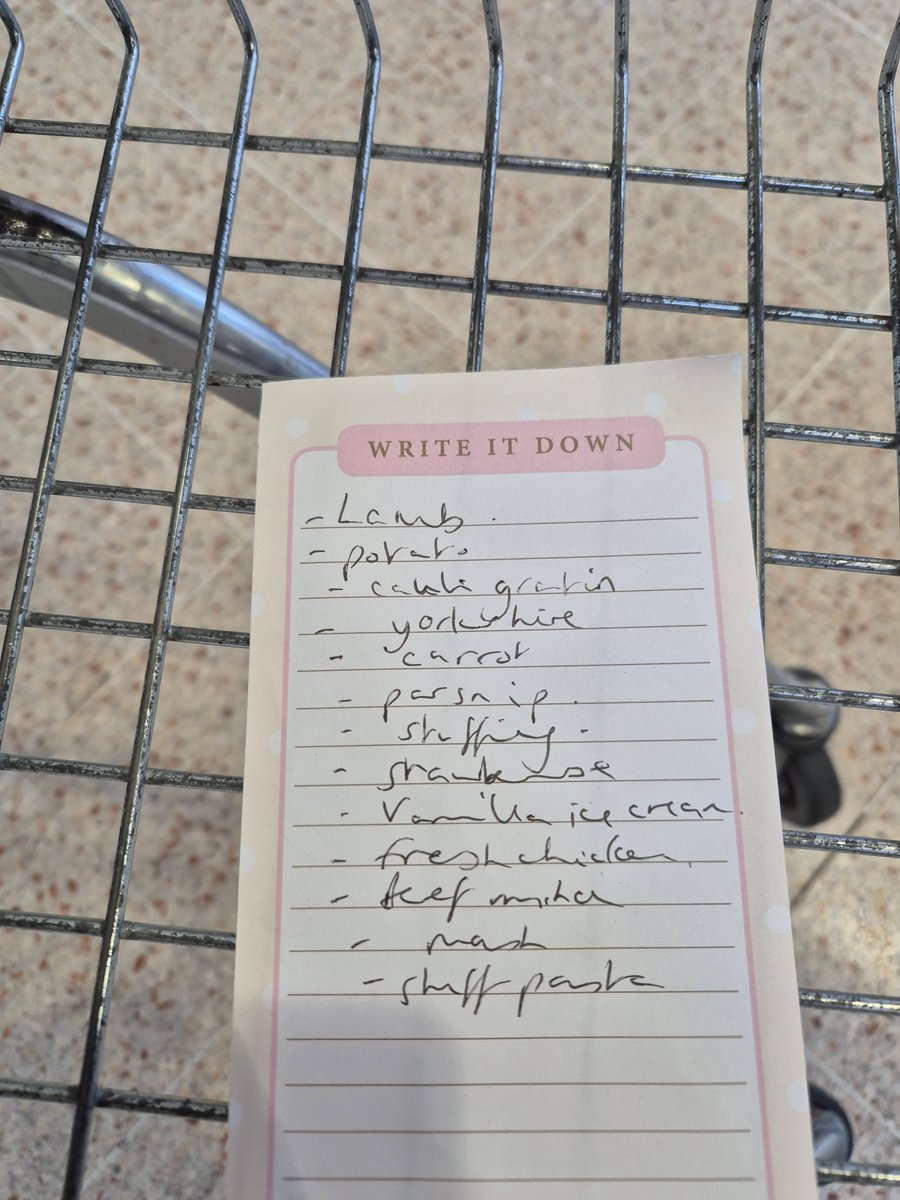 WRITE IT DOWN
- Lamb.
- potato
- cauli gratin
- yorkshire
- carrot
- parsnip.
- stuffing -
-
- Vanilla ice cream.
- fresh chicken.
- beef mince
- mash
- stuff pasta